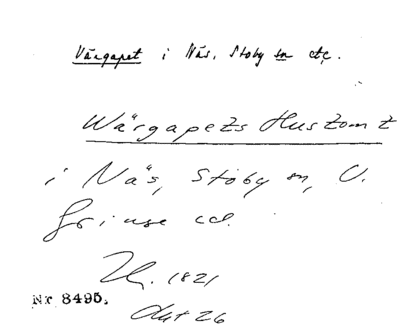 Värgapet i Näs, Stoby sn etc.
Wärgapets Hustomt
i Näs, Stöby sn, V.
Gringe cd.
1821
Nr 8495. Okt 26